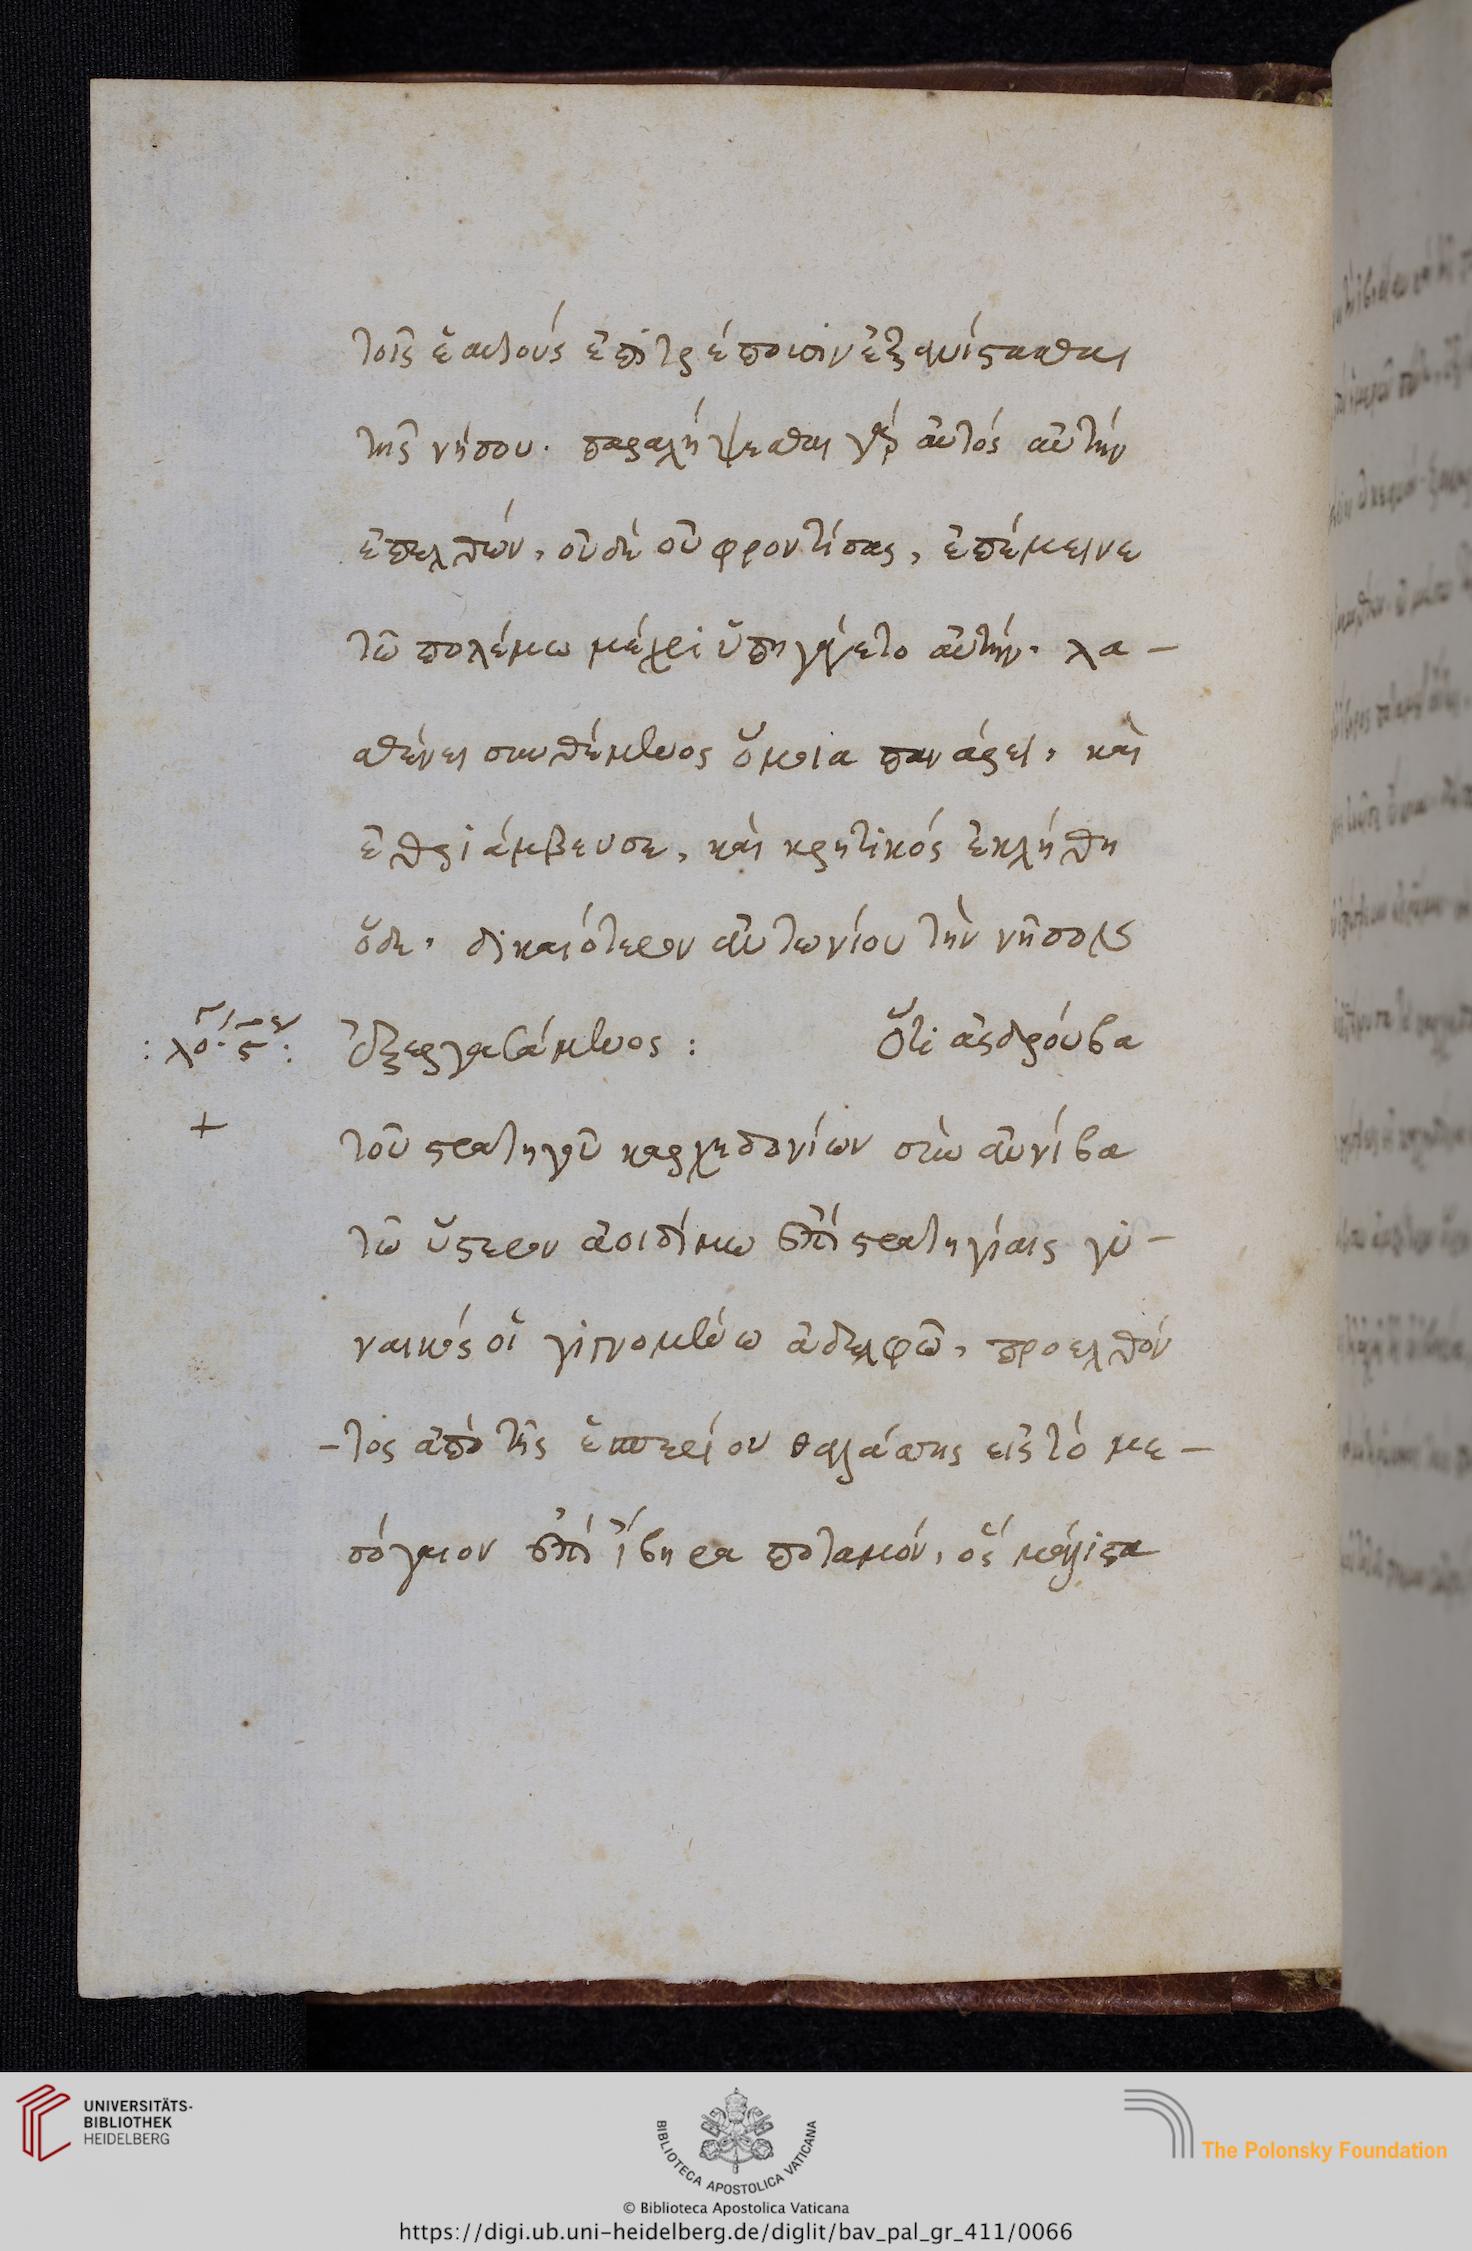 τοῖς ἑαυτοὺς ἐπιτρέπουσιν ἐξανίστασθαι
τῆς νήσου. παραλήψεσθαι γὰρ αὐτὸς αὐτὴν
ἐπελθών, οὐδὲν οὗ φροντίσας, ἐπέμεινε
τῶ πολέμω μέχρι ὑπηγάγετο αὐτήν. λα-
σθένει συνθέμενος ὅμοια πανάρει, καὶ
ἐθριάμβευσε, καὶ κρητικὸς ἐκλήθη
ὅδε. δικαιότερον ἀντωνίου τὴν νῆσον
: λο. ς :
ἐξεργασάμενος : Ὅτι ἀσδρούβα
+
τοῦ στρατηγοῦ καρχηδονίων σὺν ἀννίβα
τῶ ὕστερον ἀοιδίμω ἐπὶ στρατηγίαις γυ-
ναικός οἱ γιγνομένω ἀδελφῶ, προελθόν
-τος ἀπὸ τῆς ἑσπερίου θαλάσσης εἰς τὸ με-
σόγαιον ἐπὶ ἴβηρα ποταμόν, ὃς μάλιστα
UNIVERSITÄTS-
BIBLIOTHEK
HEIDELBERG
BIBLIOTECA APOSTOLICA VATICANA
© Biblioteca Apostolica Vaticana
The Polonsky Foundation
https://digi.ub.uni-heidelberg.de/diglit/bav_pal_gr_411/0066